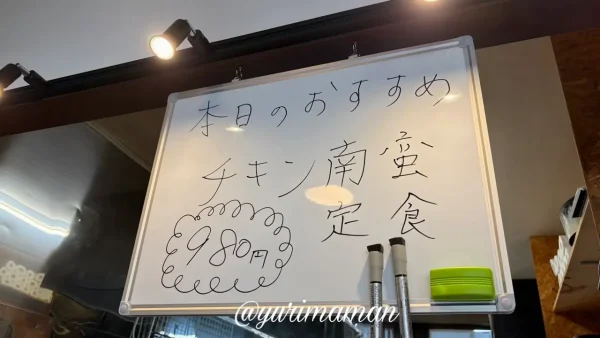 本日のおすすめ
チキン南蛮
定食
980円
@yurimaman